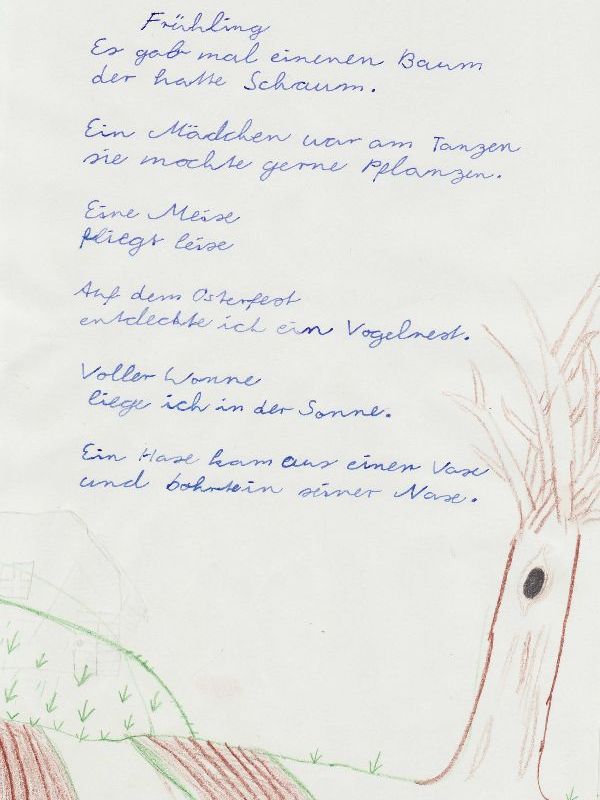 Frühling
Es gab mal einenen Baum
der hatte Schaum.
Ein Mädchen war am Tanzen
sie mochte gerne Pflanzen.
Eine Meise
fliegt leise
Auf dem Osterfest
entdeckte ich ein Vogelnest.
Voller Wonne
liege ich in der Sonne.
Ein Hase kam aus einer Vase
und bohrte in seiner Nase.